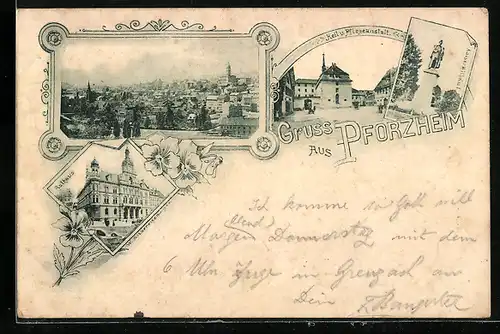 Heil u. Pflegeanstalt
Gruss
aus
Pforzheim
Rathaus
Ich komme so Gott will
Morgen (Abend) Donnerstag mit dem
6 Uhr Zuge in Grenzach an
Dein